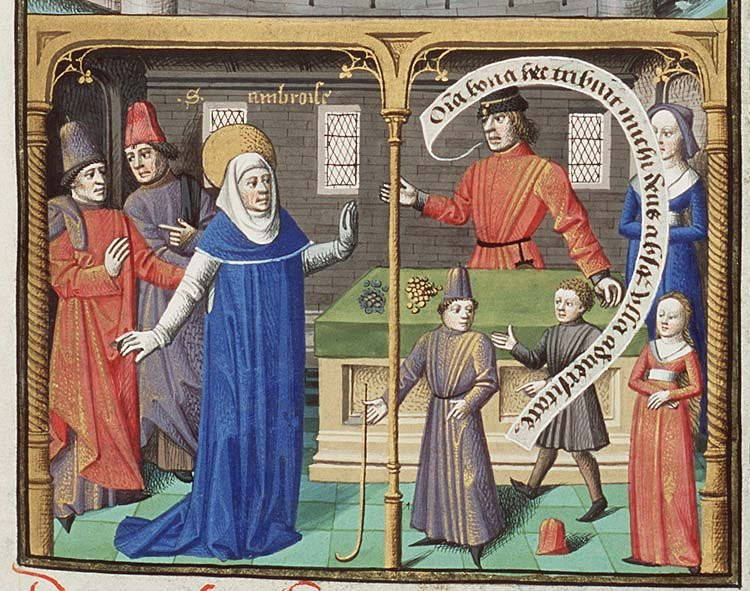 .S. ambroise
Oia bona hec tribuit michi deus absq vlla aduersitate.